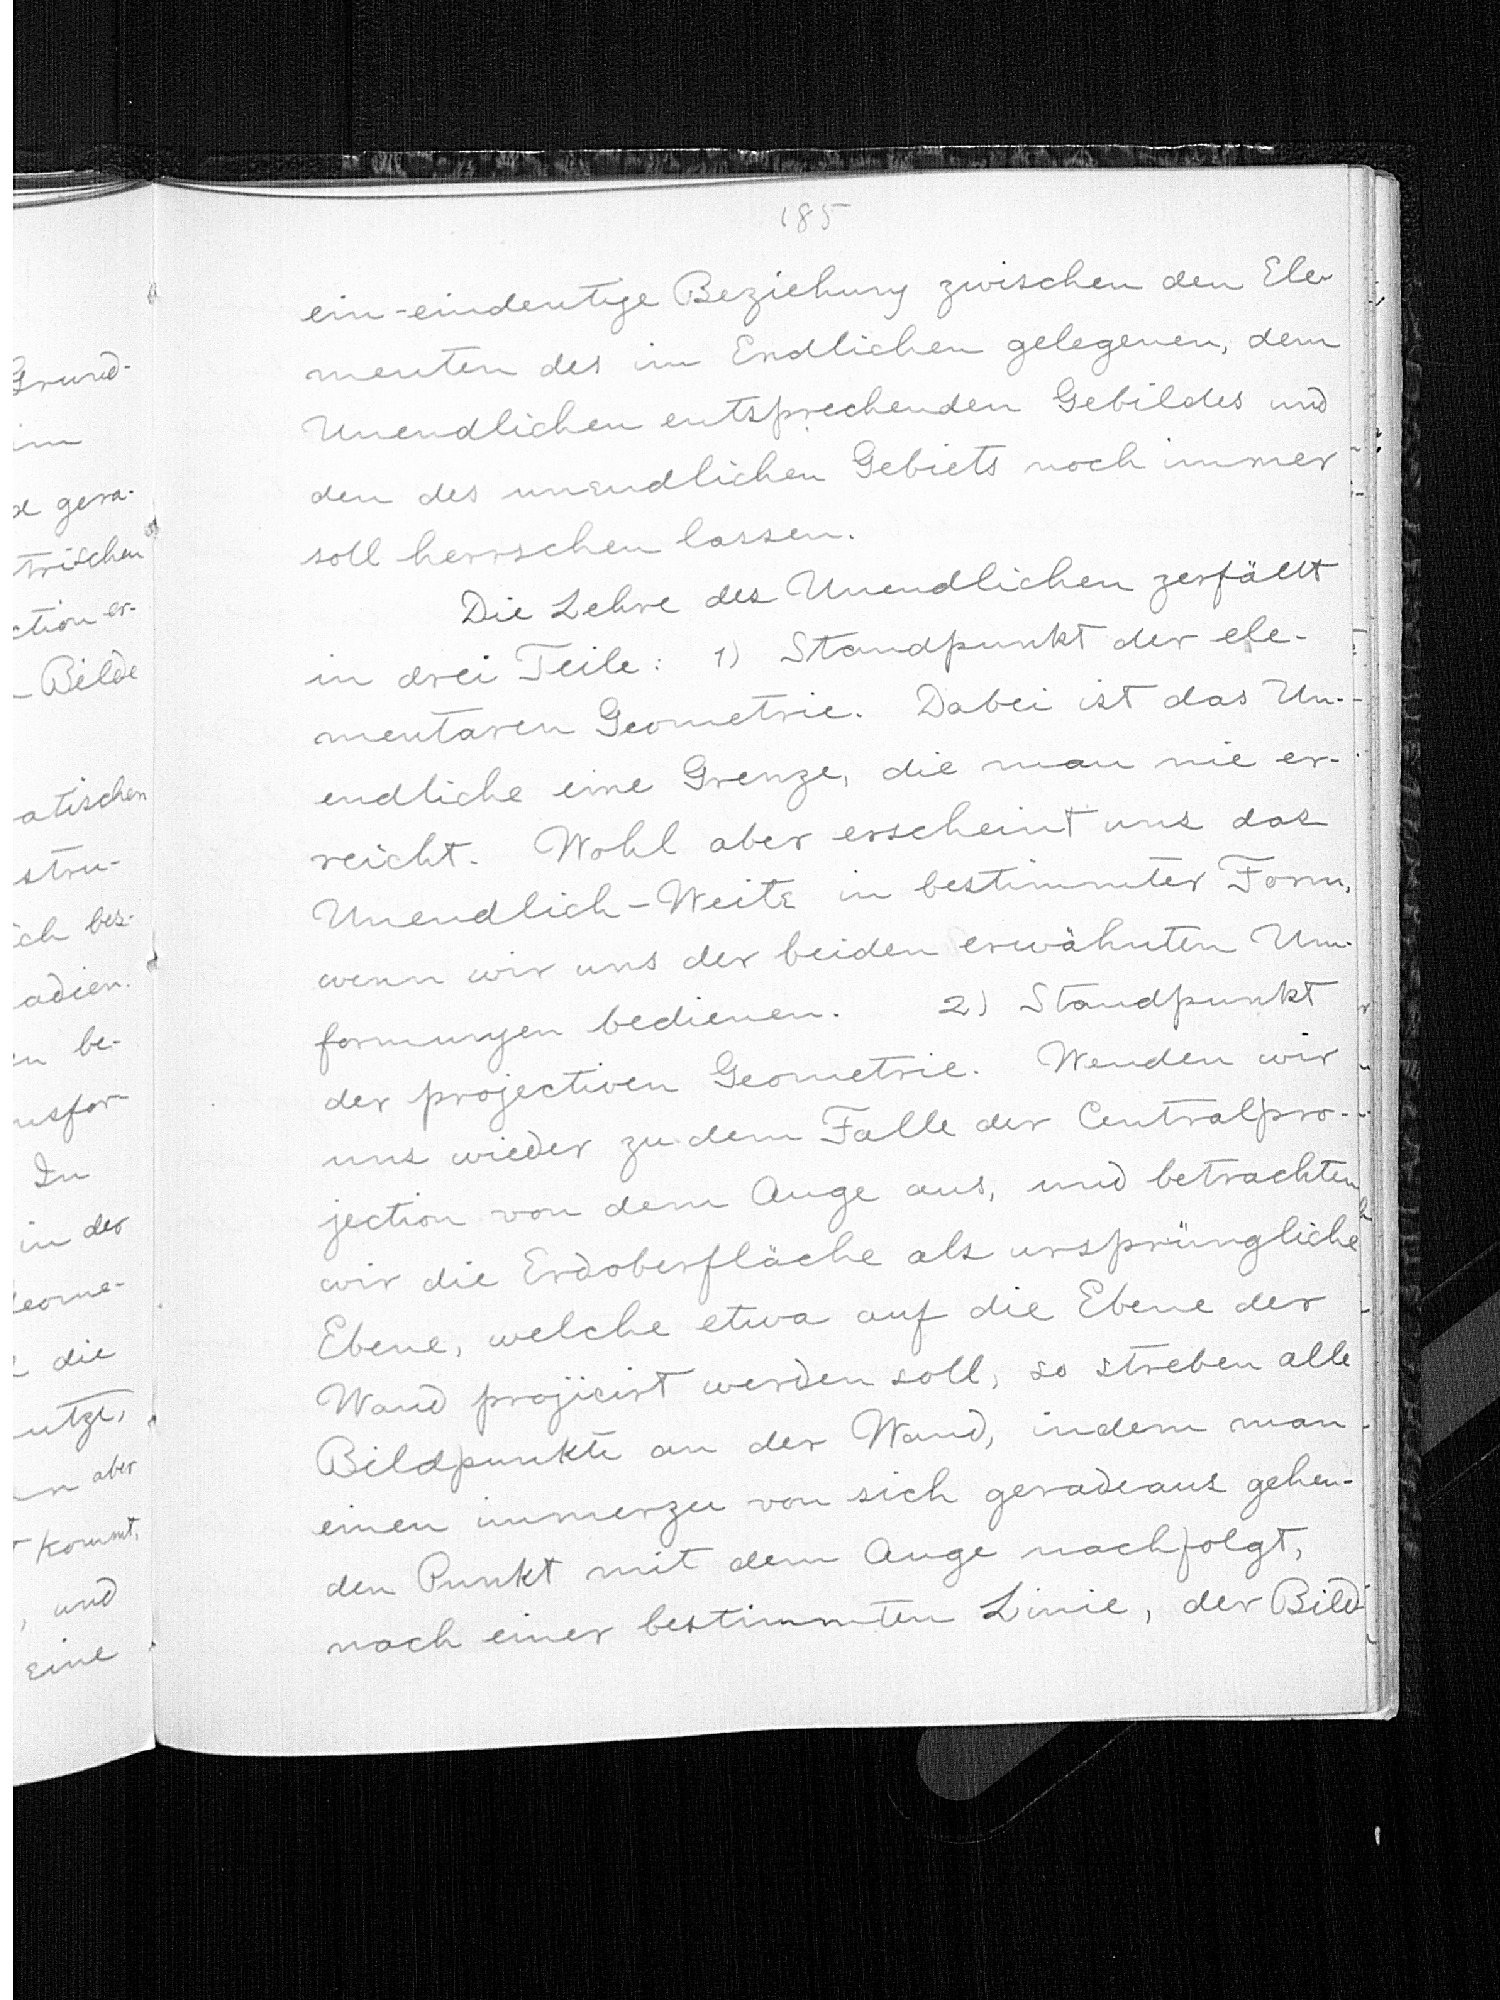 Grund-
im
gera-
trischen
ction er-
- Bilde
atischen
stru-
ich bes-
adien.
en be-
nsfor-
In
in der
Geome-
die
utzt,
aber
kommt,
, und
eine
185
ein-eindeutige Beziehung zwischen den Ele-
menten des im Endlichen gelegenen, dem
Unendlichen entsprechenden Gebildes und
den des unendlichen Gebiets noch immer
soll herrschen lassen.
Die Lehre des Unendlichen zerfällt
in drei Teile: 1) Standpunkt der ele-
mentaren Geometrie. Dabei ist das Un-
endliche eine Grenze, die man nie er-
reicht. Wohl aber erscheint uns das
Unendlich-Weite in bestimmter Form,
wenn wir uns der beiden erwähnten Um-
formungen bedienen. 2) Standpunkt
der projectiven Geometrie. Wenden wir
uns wieder zu dem Falle der Centralpro-
jection von dem Auge aus, und betrachten
wir die Erdoberfläche als ursprüngliche
Ebene, welche etwa auf die Ebene der
Wand projicirt werden soll, so streben alle
Bildpunkte an der Wand, indem man
einen immerzu von sich geradeaus gehen-
den Punkt mit dem Auge nachfolgt,
nach einer bestimmten Linie, der Bild